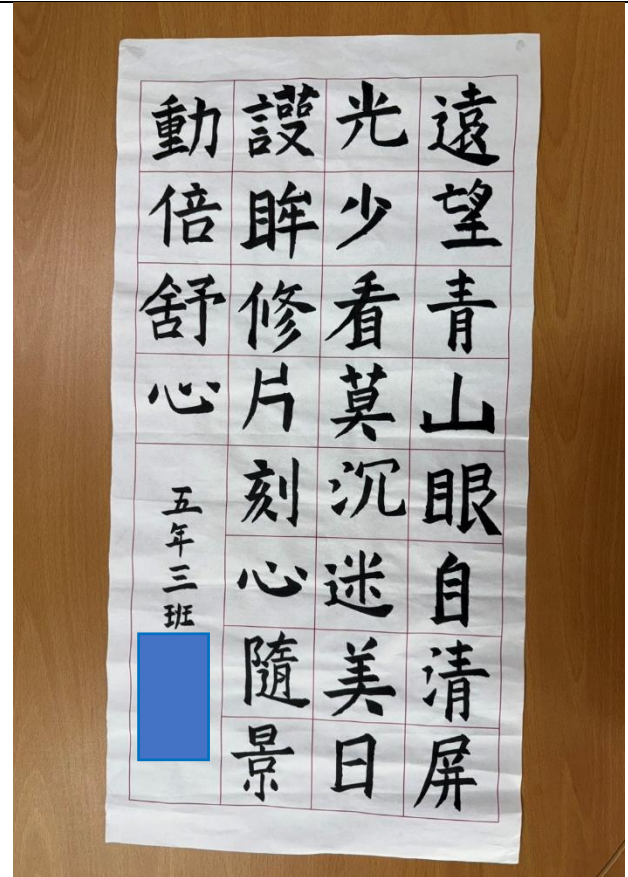 遠望青山眼自清屏
光少看莫沉迷美日
護眸修片刻心隨景
動倍舒心
五年三班